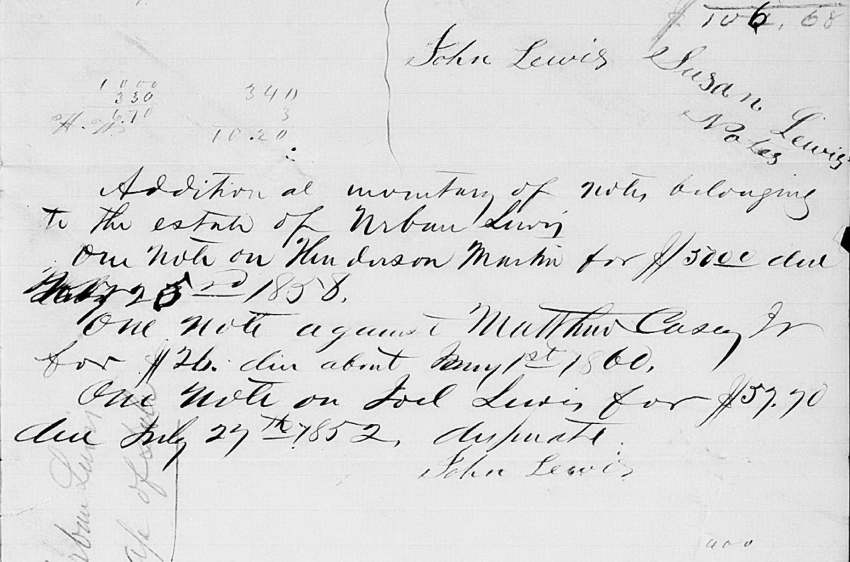 $106.68
John Lewis Susan Lewis
Notes
1000
330
6.70
340
3
10.20
Additional inventory of notes belonging
to the estate of Urban Lewis
One Note on Henderson Martin for $50.00 due
23rd 1858.
One Note against Matthew Casey Jr
for $26. due about May 1st 1860.
One Note on Joel Lewis for $57.70
due July 27th 1852, desperate.
John Lewis
Urban Lewis
of estate
400